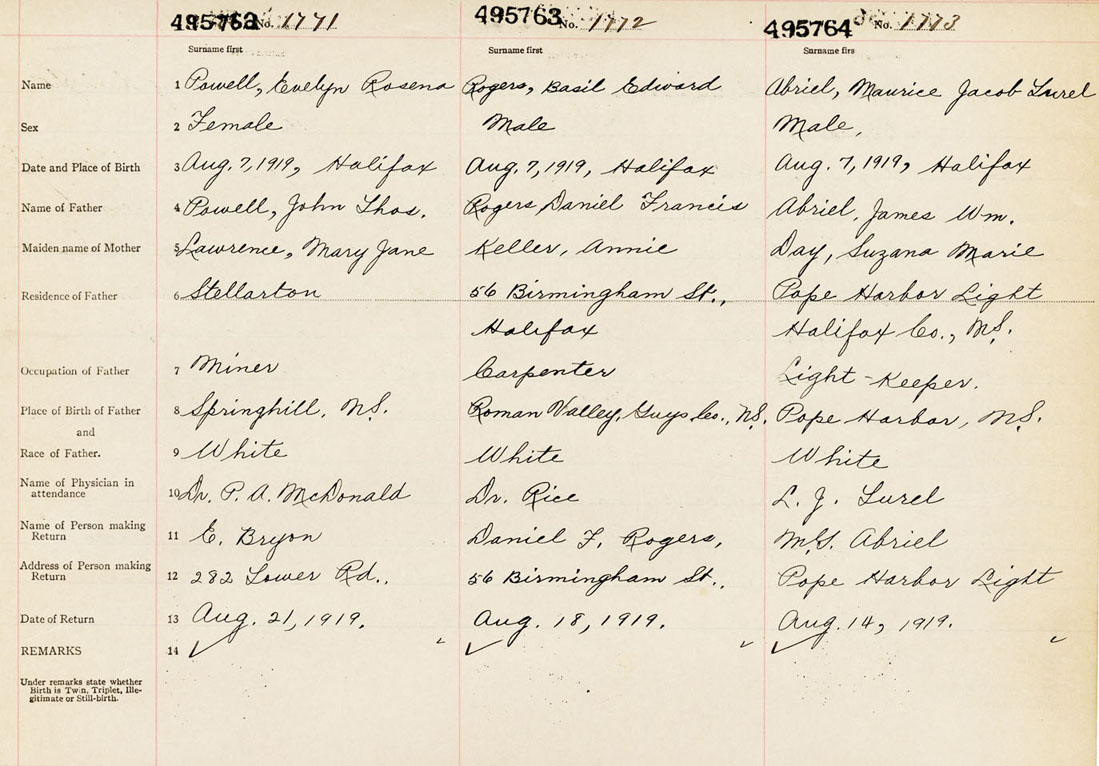 495762 No. 1771 495763 No. 1772 495764 No. 1773
Surname first Surname first Surname firs
Name 1 Powell, Evelyn Rosena Rogers, Basil Edward Abriel, Maurice Jacob Lurel
Sex 2 Female Male Male,
Date and Place of Birth 3 Aug. 7, 1919, Halifax Aug. 7, 1919, Halifax Aug. 7, 1919, Halifax
Name of Father 4 Powell, John Thos. Rogers, Daniel Francis Abriel, James Wm.
Maiden name of Mother 5 Lawrence, Mary Jane Keller, Annie Day, Suzana Marie
Residence of Father 6 Stellarton 56 Birmingham St., Pope Harbor Light
Halifax Halifax Co., N.S.
Occupation of Father 7 Miner Carpenter Light-Keeper.
Place of Birth of Father 8 Springhill, N.S. Roman Valley, Guys. Co., N.S. Pope Harbor, N.S.
and
Race of Father. 9 White White White
Name of Physician in
attendance 10 Dr. P. A. McDonald Dr. Rice L. J. Lurel
Name of Person making
Return 11 E. Bryon Daniel F. Rogers, Abriel
Address of Person making
Return 12 282 Lower Rd., 56 Birmingham St., Pope Harbor Light
Date of Return 13 Aug. 21, 1919. Aug. 18, 1919. Aug. 14, 1919.
REMARKS 14
Under remarks state whether
Birth is Twin, Triplet, Ille-
gitimate or Still-birth.